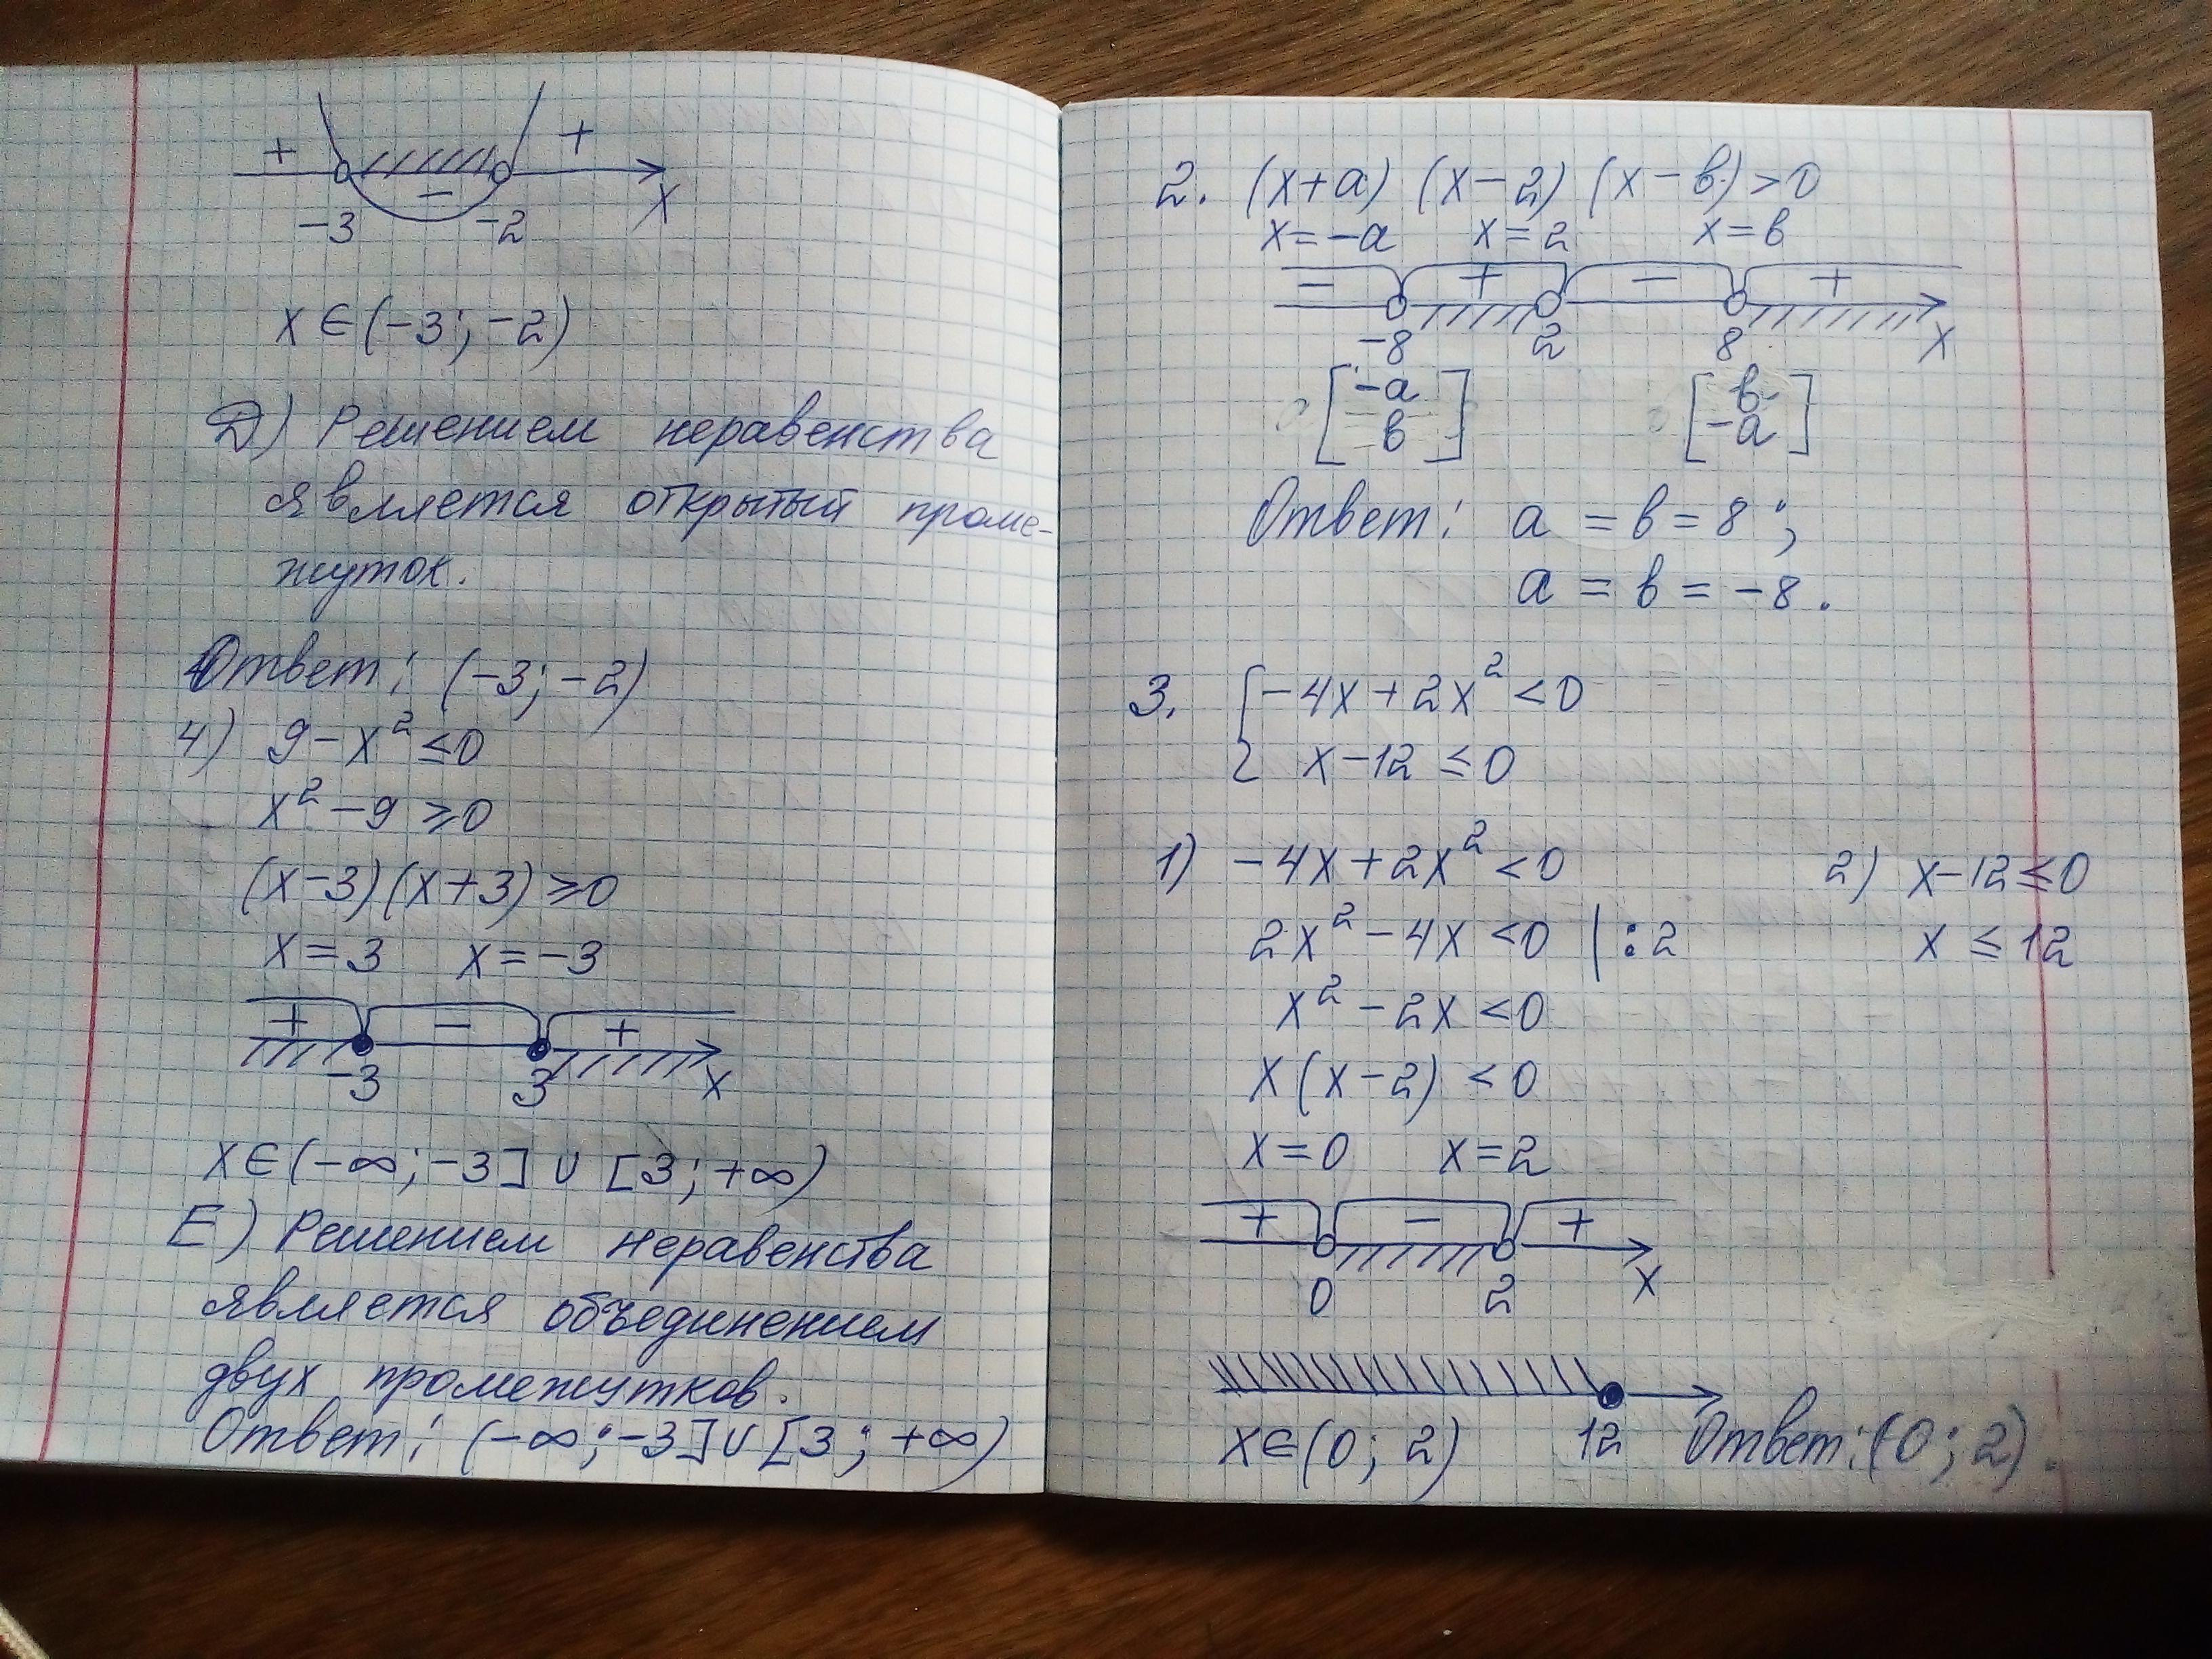 + − +
-3 -2 x
x ∈ (-3; -2)
Д) Решением неравенства
является открытый проме-
жуток.
Ответ: (-3; -2)
4) 9 - x² ≤ 0
x² - 9 ≥ 0
(x-3)(x+3) ≥ 0
x = 3 x = -3
+ − +
-3 3 x
x ∈ (-∞; -3] ∪ [3; +∞)
Е) Решением неравенства
является объединением
двух промежутков.
Ответ: (-∞; -3] ∪ [3; +∞)
2. (x+a) (x-2) (x-в) > 0
x = -a x = 2 x = в
− + − +
-8 2 8 x
[-a в] [в -a]
Ответ: a = в = 8;
a = в = -8.
3. { -4x + 2x² < 0
x - 12 ≤ 0
1) -4x + 2x² < 0 2) x - 12 ≤ 0
2x² - 4x < 0 | :2 x ≤ 12
x² - 2x < 0
x(x-2) < 0
x = 0 x = 2
+ − +
0 2 x
12
x ∈ (0; 2) Ответ: (0; 2).